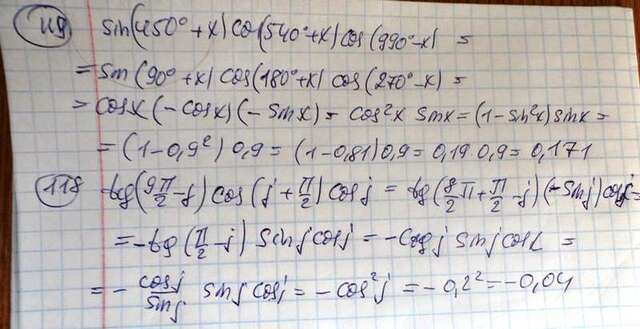 119 sin(450°+x) co(540°+x) cos(990°-x) =
= sin(90°+x) cos(180°+x) cos(270°-x) =
= cosx(-cosx)(-sinx) = cos²x sinx = (1-sin²x) sinx =
= (1-0,9²) 0,9 = (1-0,81) 0,9 = 0,19 0,9 = 0,171
118 tg(9π/2-j) cos(j+π/2) cosj = tg(8/2π+π/2-j)(-sinj) cosj =
= -tg(π/2-j) sinj cosj = -ctgj sinj cosx =
= -cosj/sinj sinj cosj = -cos²j = -0,2² = -0,04